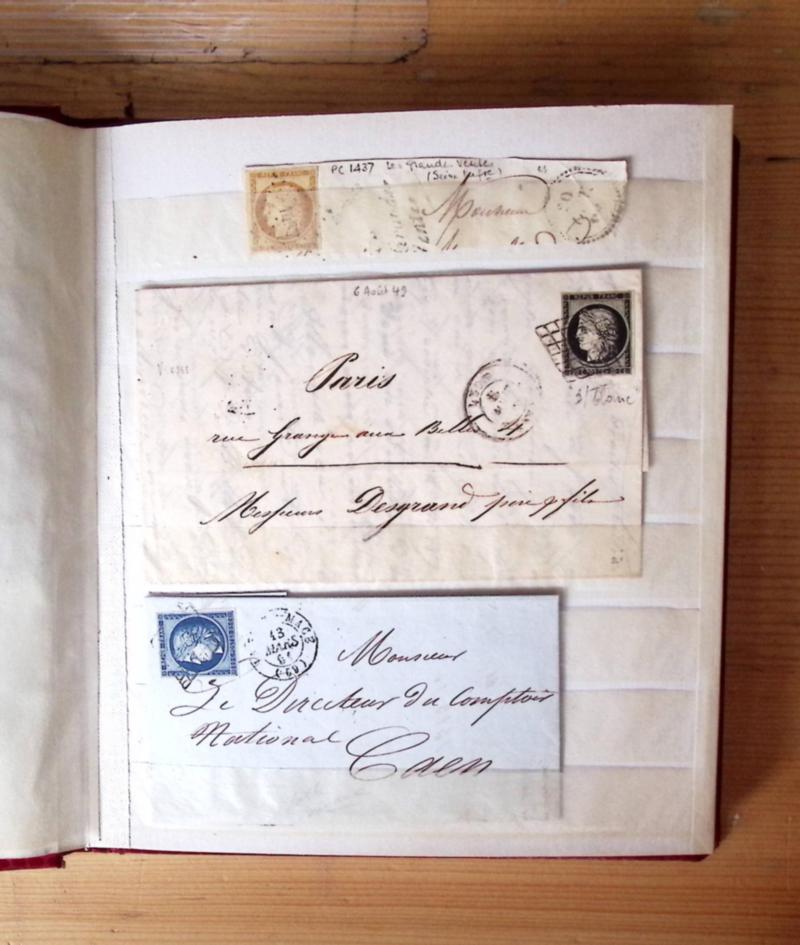 PC 1437 Les Grandes Ventes
(Seine Infre)
Les
Grandes
Ventes
Monsieur
6 Août 49
REPUB FRANC
3/blanc
Paris
rue Grange aux Belles 4
Messieurs Desgrand père & fils
13
MARS
51
Monsieur
Le Directeur du Comptoir
National
Caen